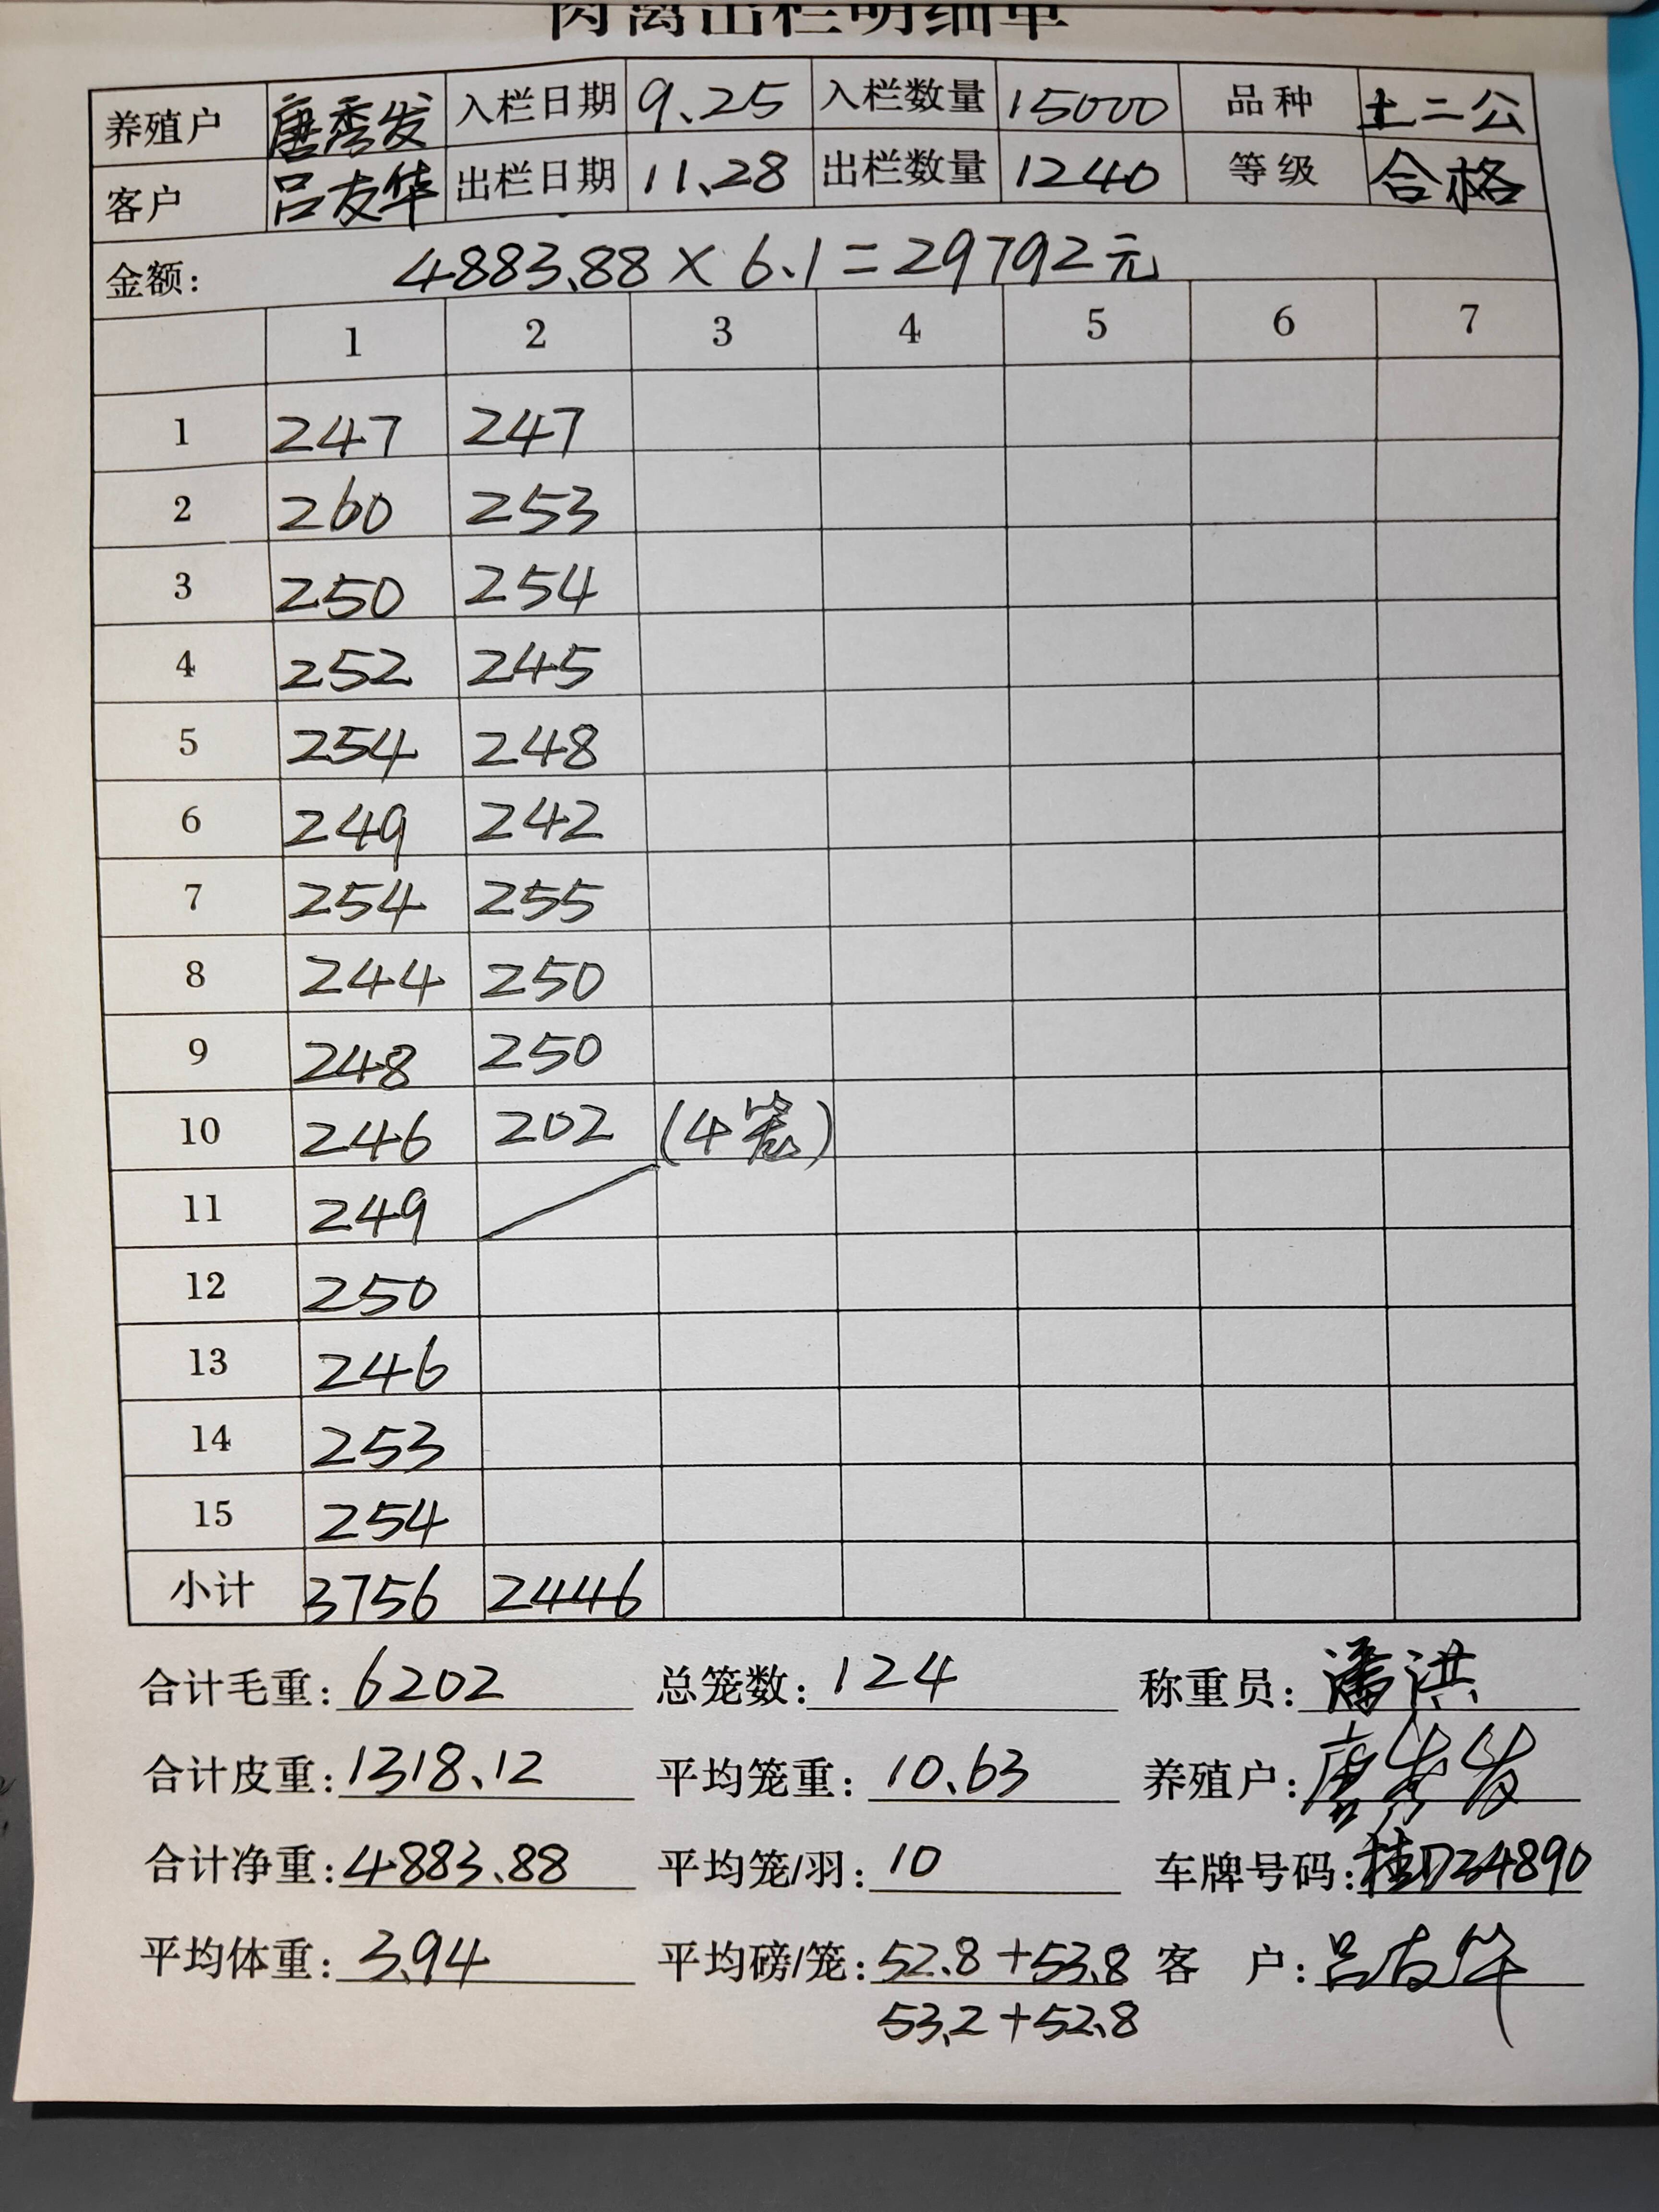 肉禽出栏明细单
养殖户 唐秀发 入栏日期 9.25 入栏数量 15000 品种 土二公
客户 吕友华 出栏日期 11.28 出栏数量 1240 等级 合格
金额: 4883.88 × 6.1 = 29792元
1 2 3 4 5 6 7
1 247 247
2 260 253
3 250 254
4 252 245
5 254 248
6 249 242
7 254 255
8 244 250
9 248 250
10 246 202 (4笼)
11 249
12 250
13 246
14 253
15 254
小计 3756 2446
合计毛重: 6202 总笼数: 124 称重员: 潘洪
合计皮重: 1318.12 平均笼重: 10.63 养殖户: 唐秀发
合计净重: 4883.88 平均笼/羽: 10 车牌号码: 桂D24890
平均体重: 3.94 平均磅/笼: 52.8+53.8 客户: 吕友华
53.2+52.8